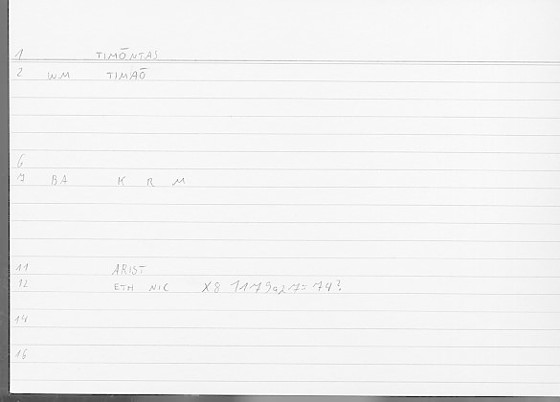 1 TIMŌNTAS
2 WM TIMAŌ
6
7 BA K R M
11 ARIST
12 ETH NIC X8 1179a27
14
16